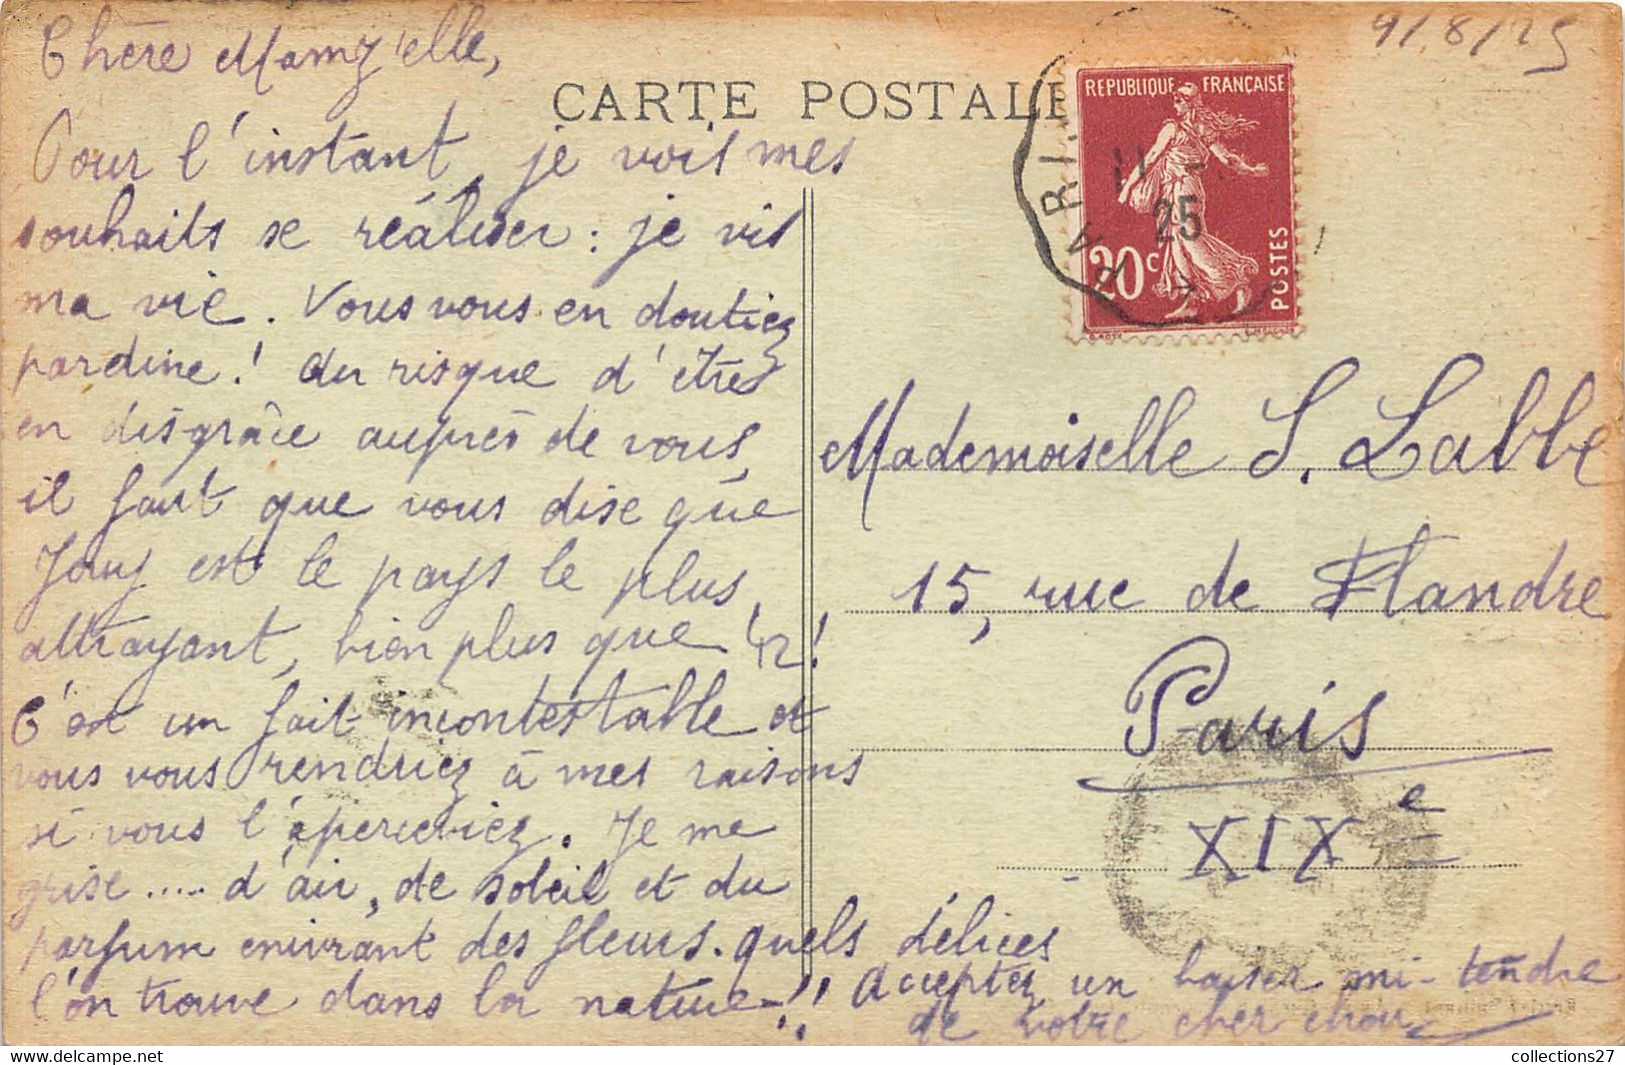 9/8/25
Chère Mamz'elle,
CARTE POSTALE
Pour l'instant, je vois mes
souhaits se réaliser : je vis
ma vie. Vous vous en doutiez
pardine! Au risque d'êtres
en disgrâce auprès de vous,
il faut que vous dise que
Jouy est le pays le plus
attrayant, bien plus que
C'est un fait incontestable et
vous vous rendriez à mes raisons
si vous l'aperceviez. Je me
grise..... d'air, de soleil et du
parfum enivrant des fleurs. quels délices
l'on trouve dans la nature!!
Acceptez un baiser mi-tendre
de votre cher chou
REPUBLIQUE FRANÇAISE
20c
POSTES
PARIS
11
25
Mademoiselle S. Labbe
15, rue de Flandre
Paris
XIXe
collections27